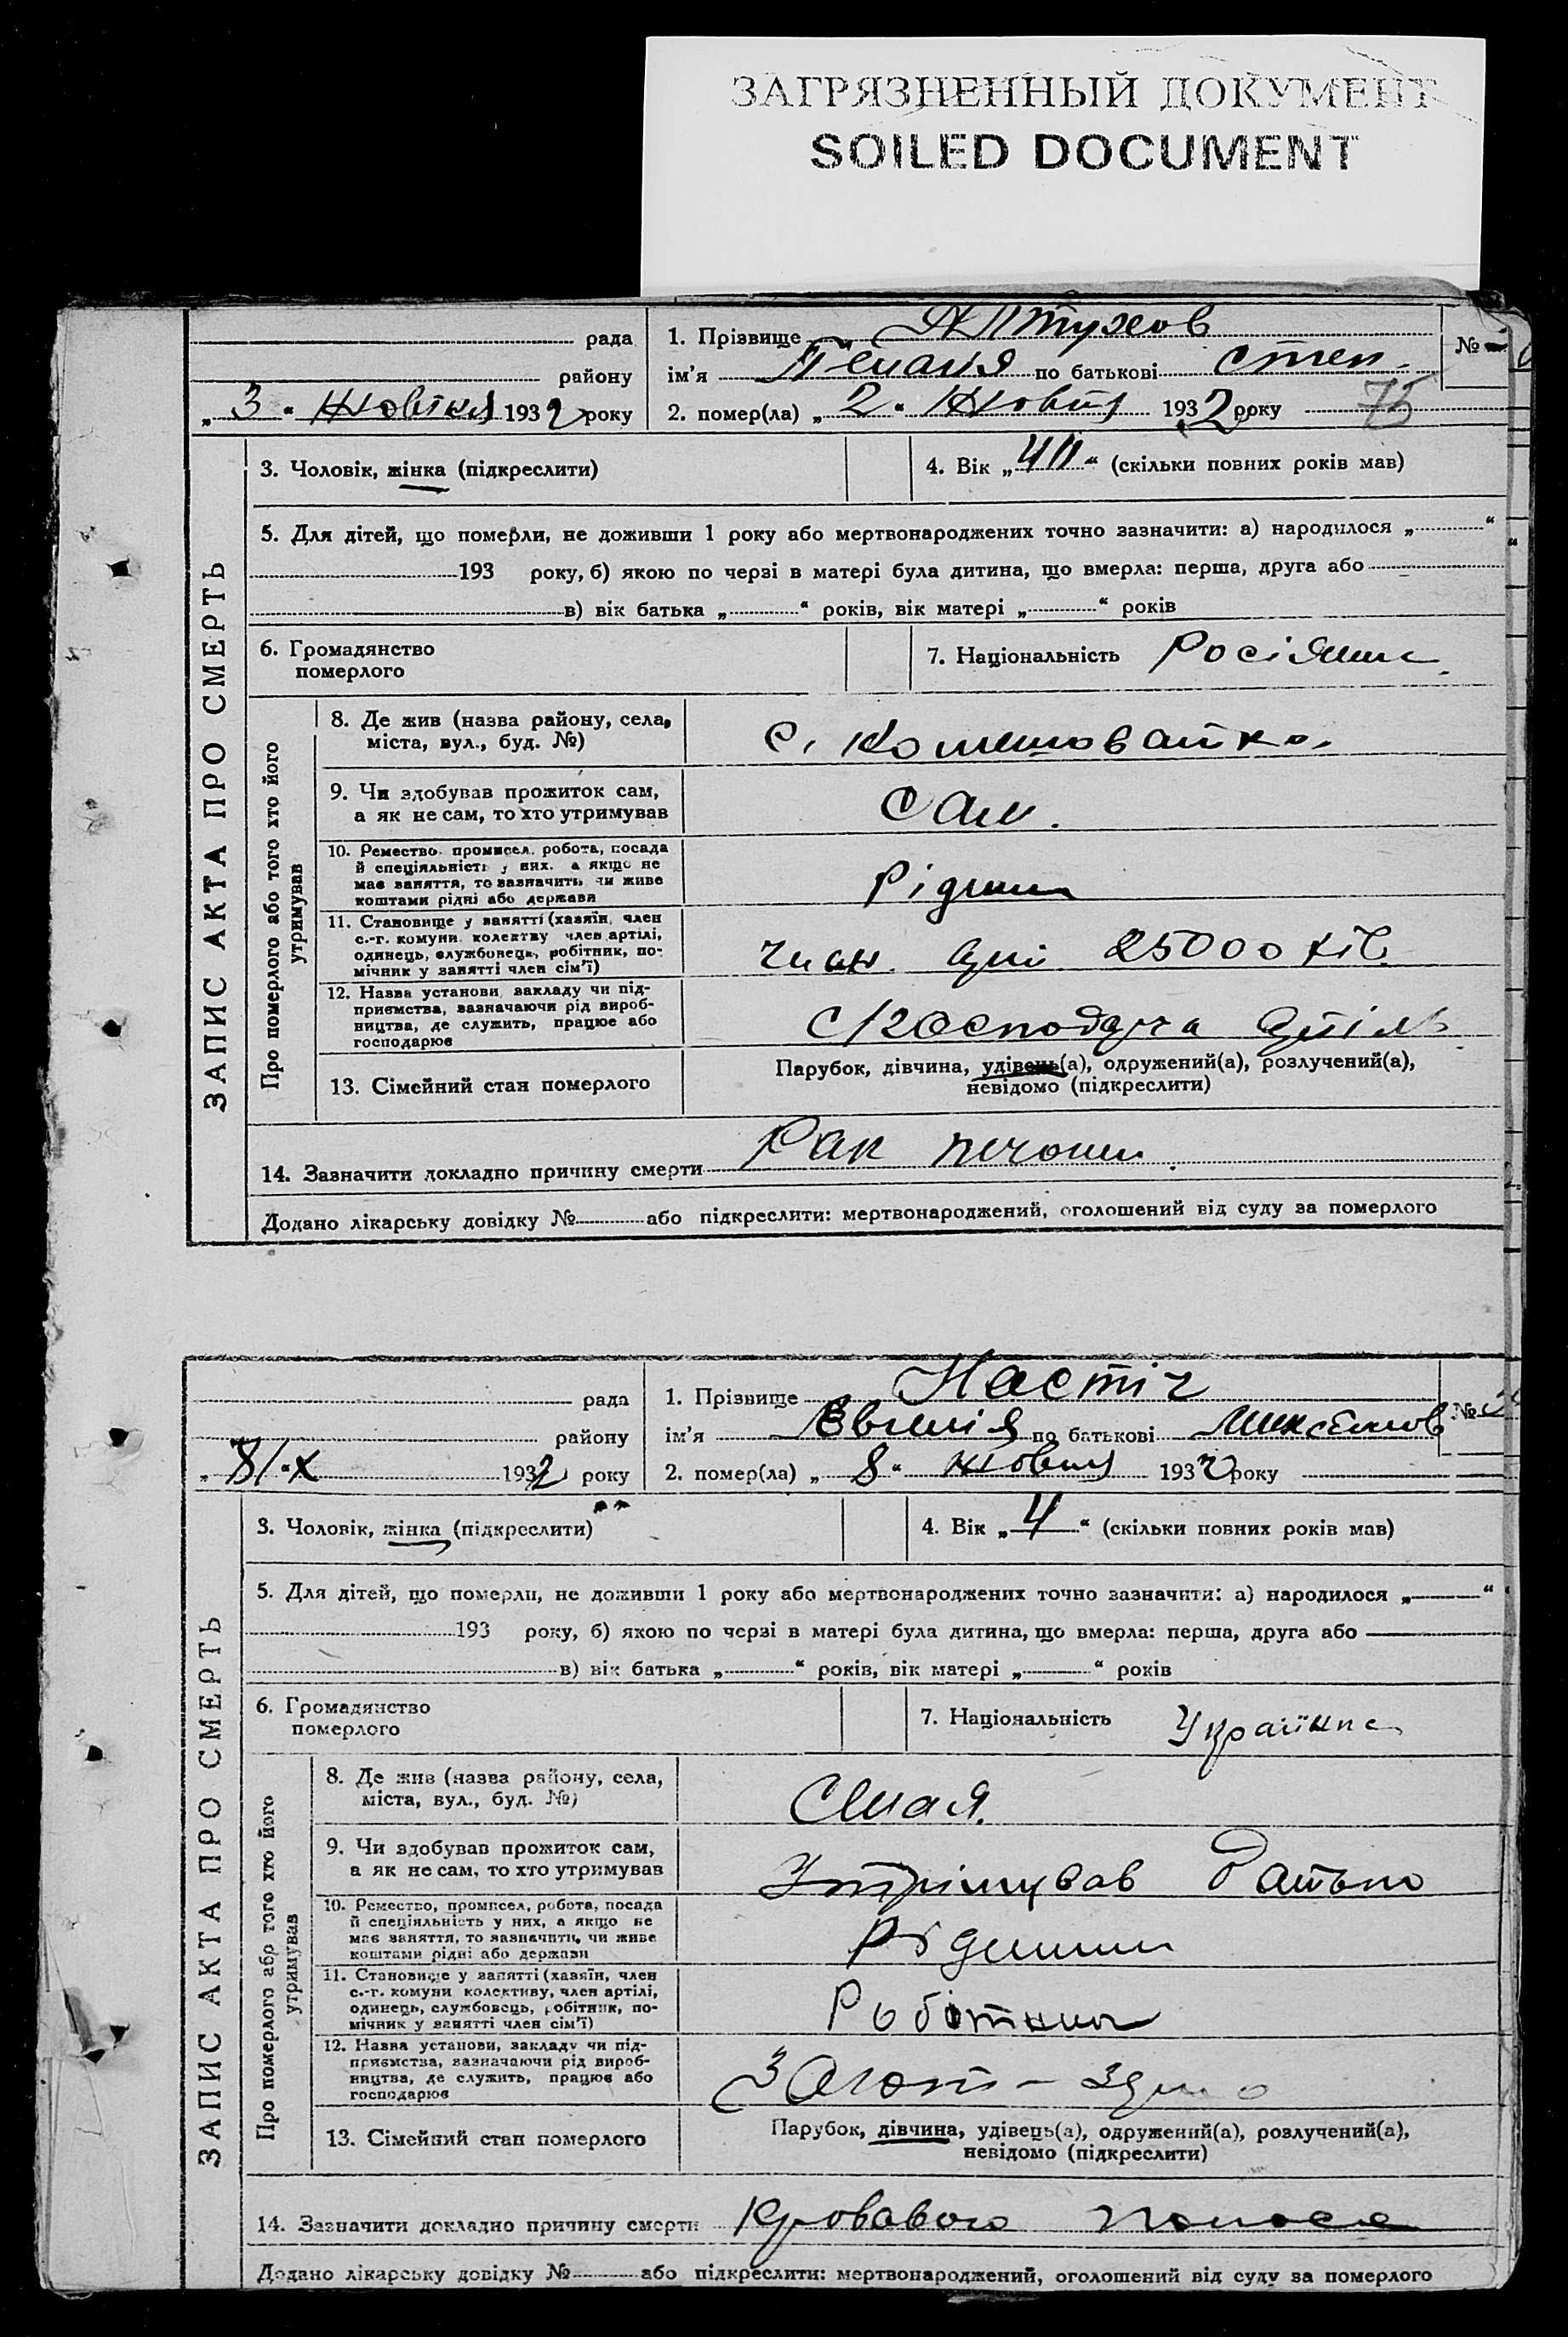 ЗАГРЯЗНЕННЫЙ ДОКУМЕНТ
SOILED DOCUMENT
рада
району
„ 3 “ жовтня 1932 року
1. Прізвище Алтухов
ім’я по батькові Степ.
2. помер(ла) „ 2 “ Жовтня 1932 року
75
№
ЗАПИС АКТА ПРО СМЕРТЬ
3. Чоловік, жінка (підкреслити)
4. Вік „ “ (скільки повних років мав)
5. Для дітей, що померли, не доживши 1 року або мертвонароджених точно зазначити: а) народилося „ “
193 року, б) якою по черзі в матері була дитина, що вмерла: перша, друга або
в) вік батька „ “ років, вік матері „ “ років
6. Громадянство
померлого
7. Національність
Про померлого або того хто його
утримував
8. Де жив (назва району, села,
міста, вул., буд. №)
с.
9. Чи здобував прожиток сам,
а як не сам, то хто утримував
Сам.
10. Ремество, промисел, робота, посада
й спеціяльність у них, а якщо не
має заняття, то зазначить чи живе
коштами рідні або держави
11. Становище у занятті (хазяїн, член
с.-г. комуни, колективу член артілі,
одинець, службовець, робітник, по-
мічник у занятті член сім’ї)
член. 25000
12. Назва установи, закладу чи під-
приємства, зазначаючи рід вироб-
ництва, де служить, працює або
господарює
с/господ
13. Сімейний стан померлого
Парубок, дівчина, удівець(а), одружений(а), розлучений(а),
невідомо (підкреслити)
14. Зазначити докладно причину смерти Рак печонки.
Додано лікарську довідку № або підкреслити: мертвонароджений, оголошений від суду за померлого
рада
району
„ 8/“ X 1932 року
1. Прізвище Настіч
ім’я Євгенія по батькові Максимов
2. помер(ла) „ 8 “ жовтня 1932 року
№
ЗАПИС АКТА ПРО СМЕРТЬ
3. Чоловік, жінка (підкреслити)
4. Вік „ 4 “ (скільки повних років мав)
5. Для дітей, що померли, не доживши 1 року або мертвонароджених точно зазначити: а) народилося „ “
193 року, б) якою по черзі в матері була дитина, що вмерла: перша, друга або
в) вік батька „ “ років, вік матері „ “ років
6. Громадянство
померлого
7. Національність Українка
Про померлого або того хто його
утримував
8. Де жив (назва району, села,
міста, вул., буд. №)
9. Чи здобував прожиток сам,
а як не сам, то хто утримував
Утрімував батько
10. Ремество, промисел, робота, посада
й спеціяльність у них, а якщо не
має заняття, то зазначити, чи живе
коштами рідні або держави
11. Становище у занятті (хазяїн, член
с.-г. комуни колективу, член артілі,
одинець, службовець, робітник, по-
мічник у занятті член сім’ї)
Робітник
12. Назва установи, закладу чи під-
приємства, зазначаючи рід вироб-
ництва, де служить, працює або
господарює
Загот-
13. Сімейний стан померлого
Парубок, дівчина, удівець(а), одружений(а), розлучений(а),
невідомо (підкреслити)
14. Зазначити докладно причину смерти Кровавого поноса
Додано лікарську довідку № або підкреслити: мертвонароджений, оголошений від суду за померлого